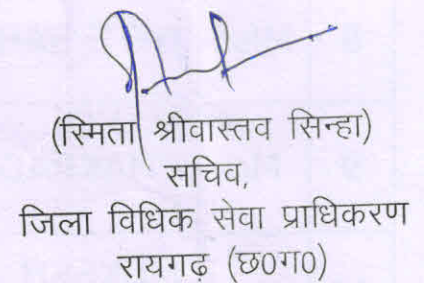 (स्मिता श्रीवास्तव सिन्हा)
सचिव,
जिला विधिक सेवा प्राधिकरण
रायगढ़ (छ0ग0)